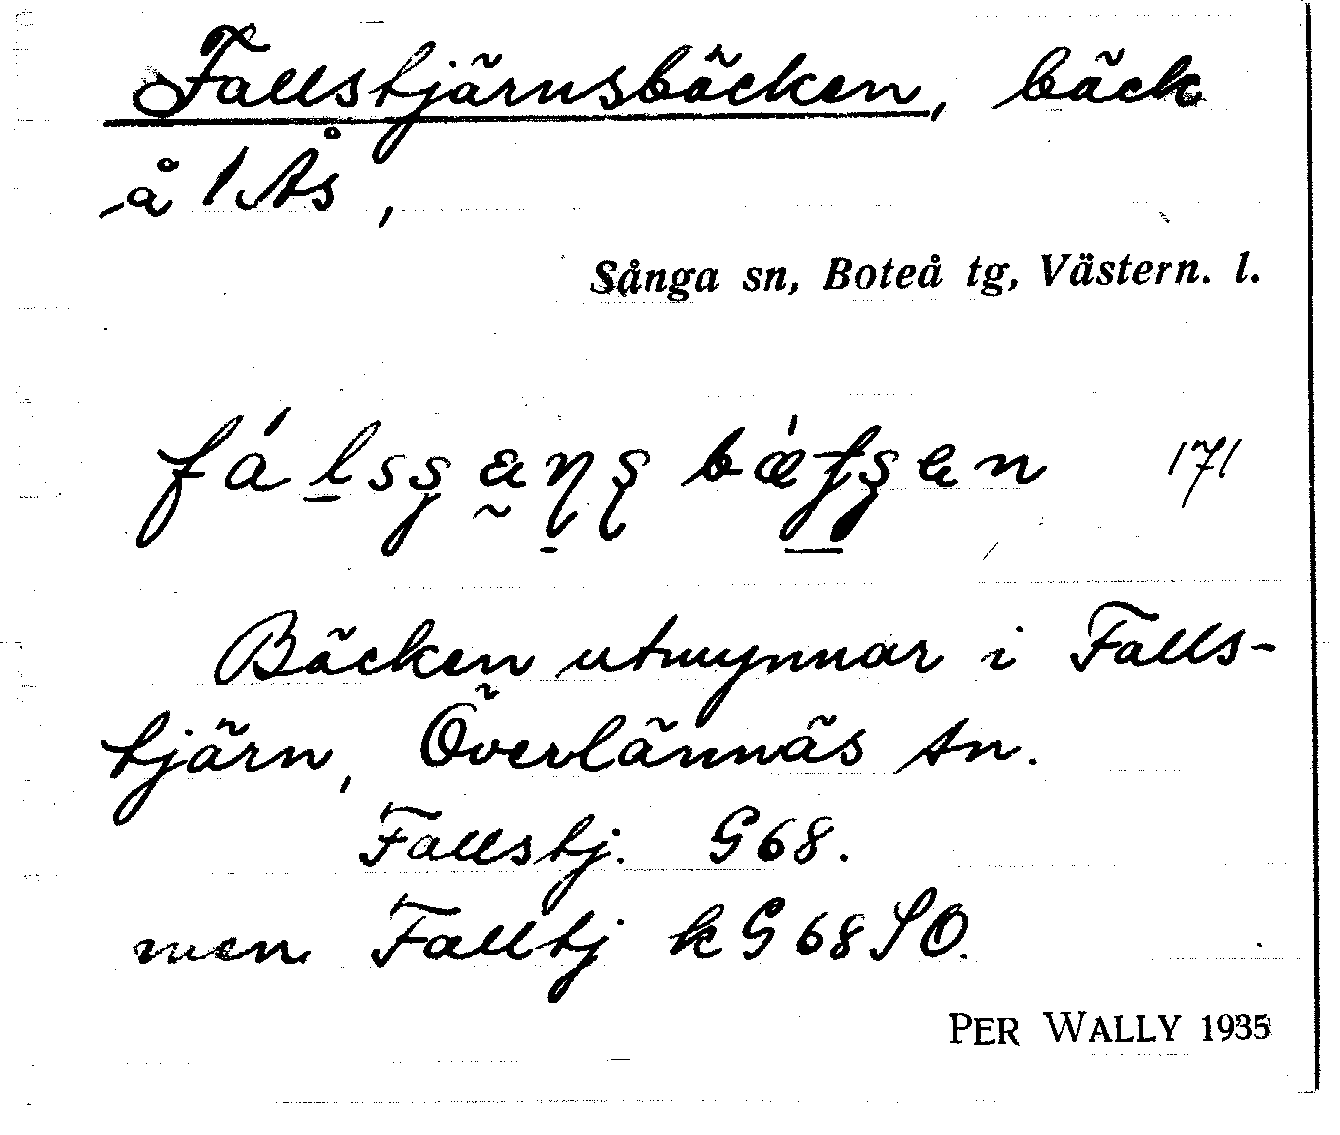 Fallstjärnsbäcken, bäck
å 1 Ås,
Sånga sn, Boteå tg, Västern. l.
171
Bäcken utmynnar i Falls-
tjärn, Överlännäs sn.
Fallstj. G68.
men Falltj k G68SO.
PER WALLY 1935